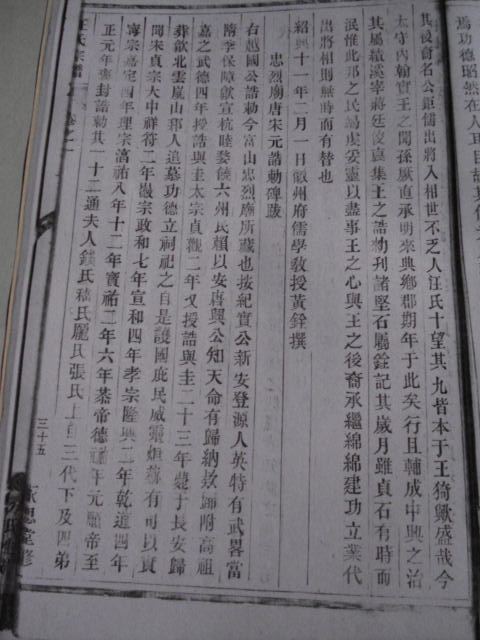 爲功德昭然在人耳目
其後裔名公鉅儒出將入相世不乏人汪氏十望其九皆本于王猗歟盛哉今
太守內翰實王之聞孫厥直承明來典鄉郡期年于此矣行且輔成中興之治
其屬績溪宰蔣廷俊裒集王之誥勑刊諸堅石屬銓記其歲月雖貞石有時而
泯惟此邦之民揭虔安靈以盡事王之心與王之後裔承繼綿綿建功立業代
出將相則無時而有替也
紹興十一年二月一日徽州府儒學教授黃銓撰
忠烈廟唐宋元誥勑碑跋
右越國公誥勑今富山忠烈廟所藏也按紀實公新安登源人英特有武畧當
隋季保障歙宣杭睦婺饒六州民賴以安唐興公知天命有歸納欵歸附高祖
嘉之武德四年授誥與圭太宗貞觀二年又授誥與圭二十三年薨于長安歸
葬歙北雲嵐山邦人追慕功德立祠祀之自是護國庇民威靈有可以實
聞宋貞宗大中祥符二年徽宗政和七年宣和四年孝宗隆興二年乾道四年
寧宗嘉定四年理宗淳祐八年十二年寶祐二年六年恭帝德祐元年元順帝至
正元年褒封誥勑共一十二通夫人錢氏嵇氏龐氏張氏上自三代下及四弟
汪氏宗譜 卷之一
三十五